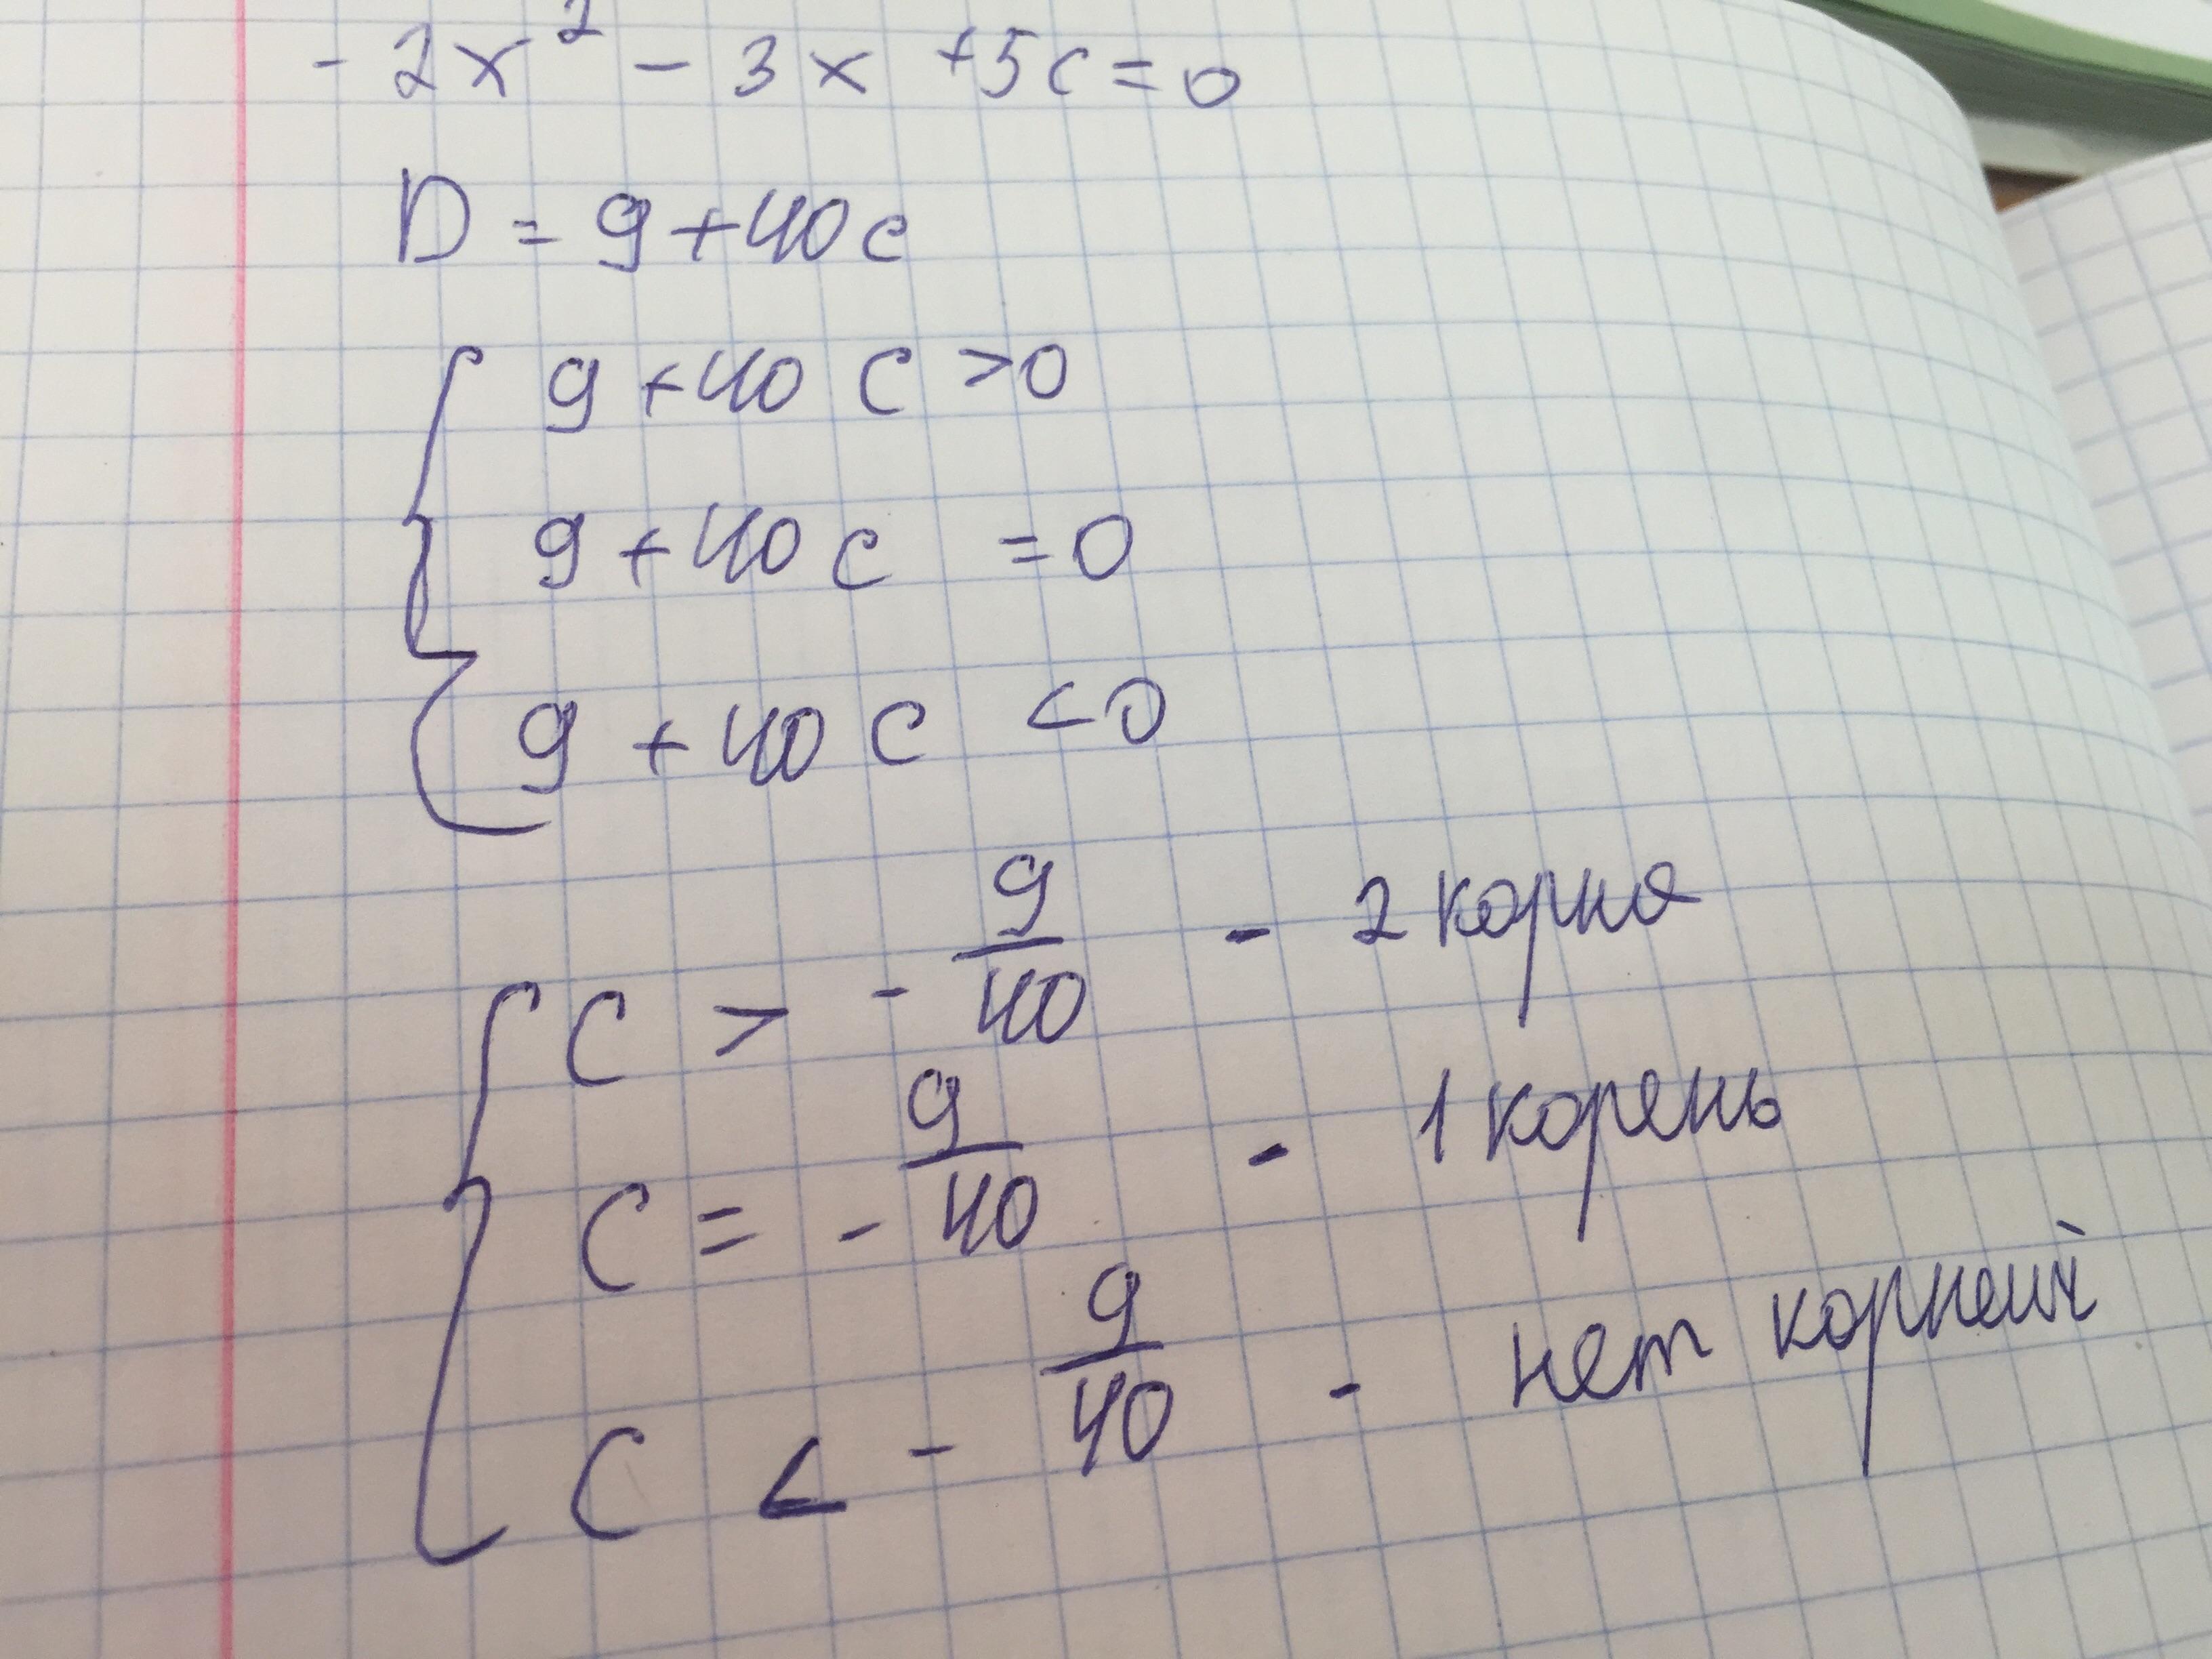 -2x² - 3x + 5c = 0
D = 9 + 40c
9 + 40c > 0
9 + 40c = 0
9 + 40c < 0
c > - 9/40 - 2 корня
c = - 9/40 - 1 корень
c < - 9/40 - нет корней